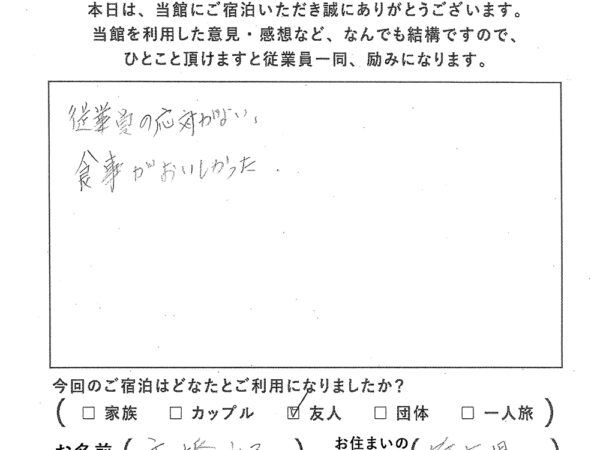 本日は、当館にご宿泊いただき誠にありがとうございます。
当館を利用した意見・感想など、なんでも結構ですので、
ひとこと頂けますと従業員一同、励みになります。
従業員の応対がよい、
食事がおいしかった.
今回のご宿泊はどなたとご利用になりましたか?
( □ 家族 □ カップル ☑ 友人 □ 団体 □ 一人旅 )
お名前 ( ) お住まいの (